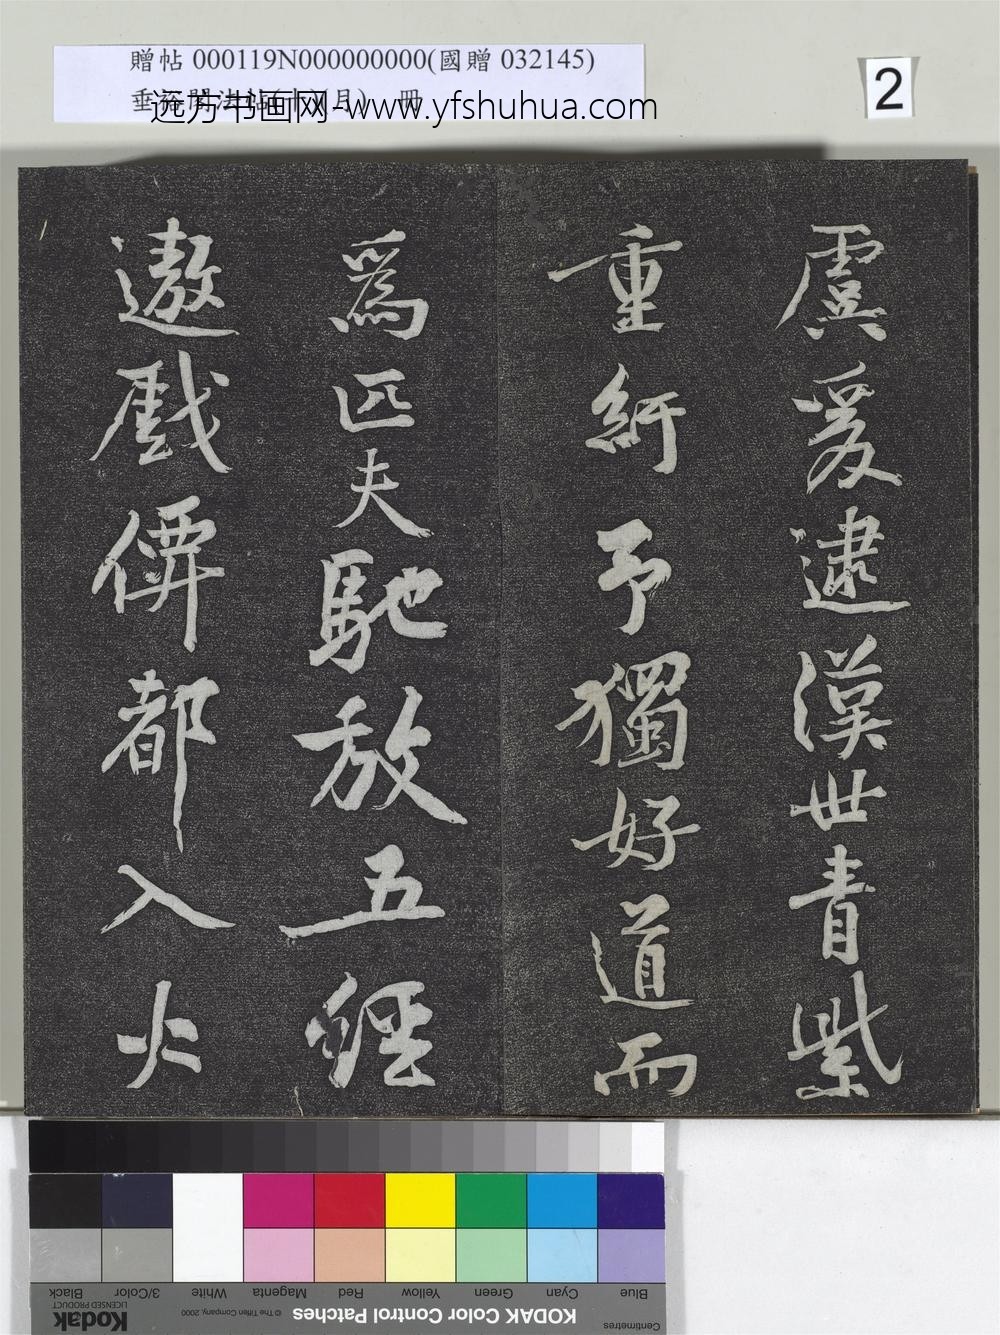 贈帖 000119N000000000(國贈 032145)
远方书画网-www.yfshuhua.com
2
虞爰逮漢世青紫
重紆予獨好道而
爲匹夫馳放五經
遨戲儕都入火
Blue Cyan Green Yellow Red Magenta White 3/Color Black
Centimetres
KODAK Color Control Patches
© The Tiffen Company, 2000
Kodak
LICENSED PRODUCT